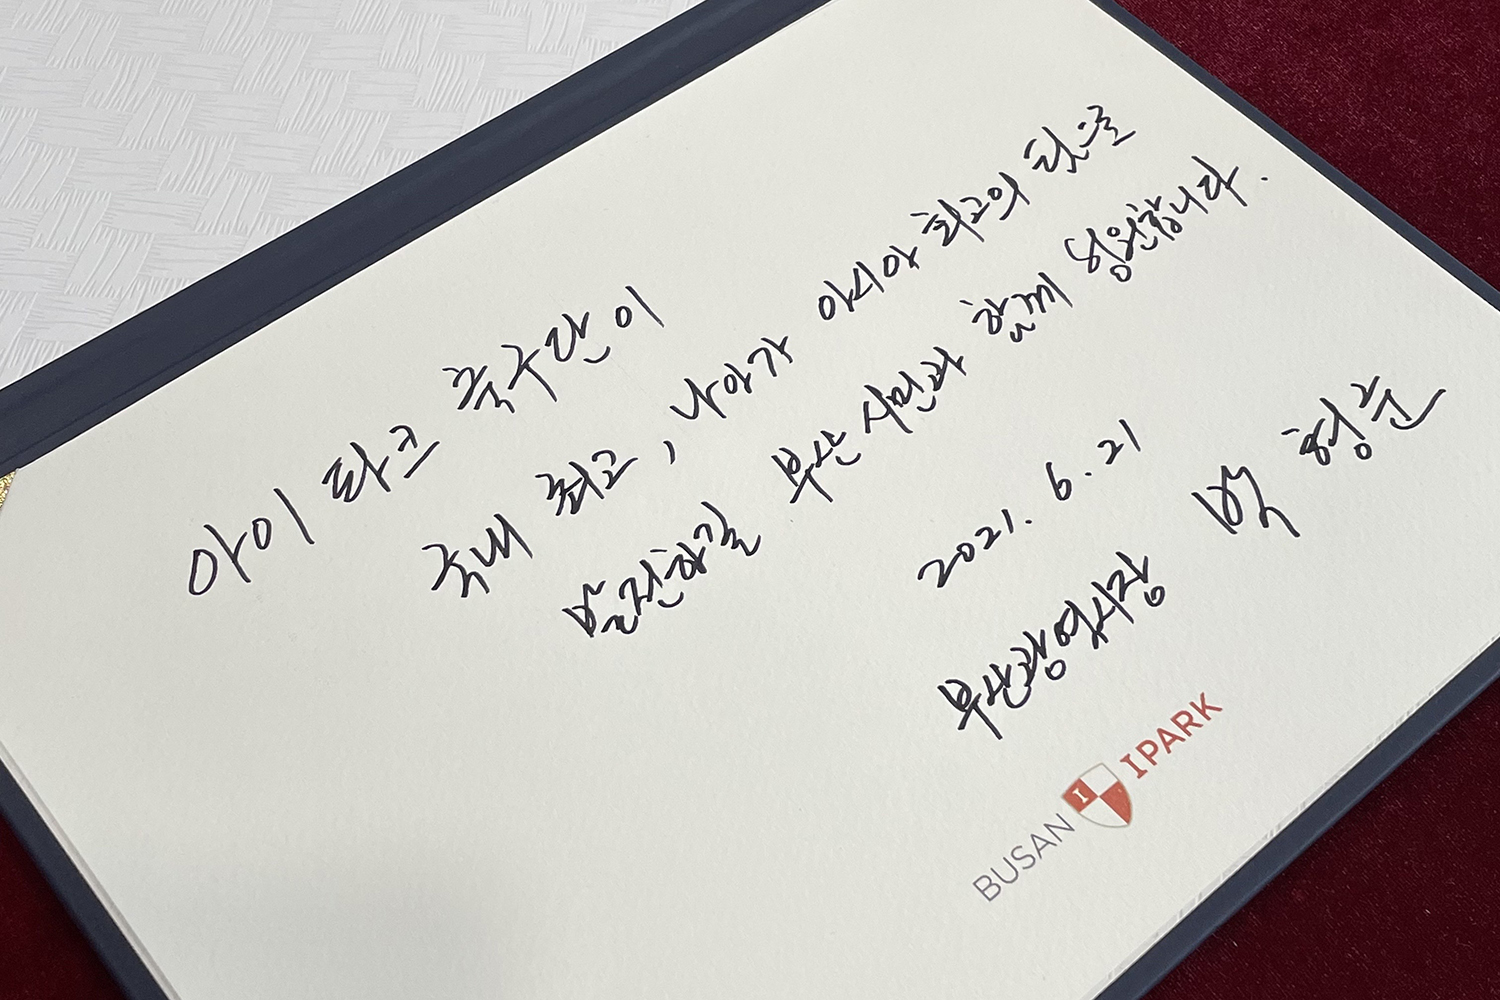 아이파크 축구단이
국내 최고, 나아가 아시아 최고의 팀으로
발전하길 부산 시민과 함께 응원합니다.
2021. 6. 21
부산광역시장 박형준
BUSAN I IPARK